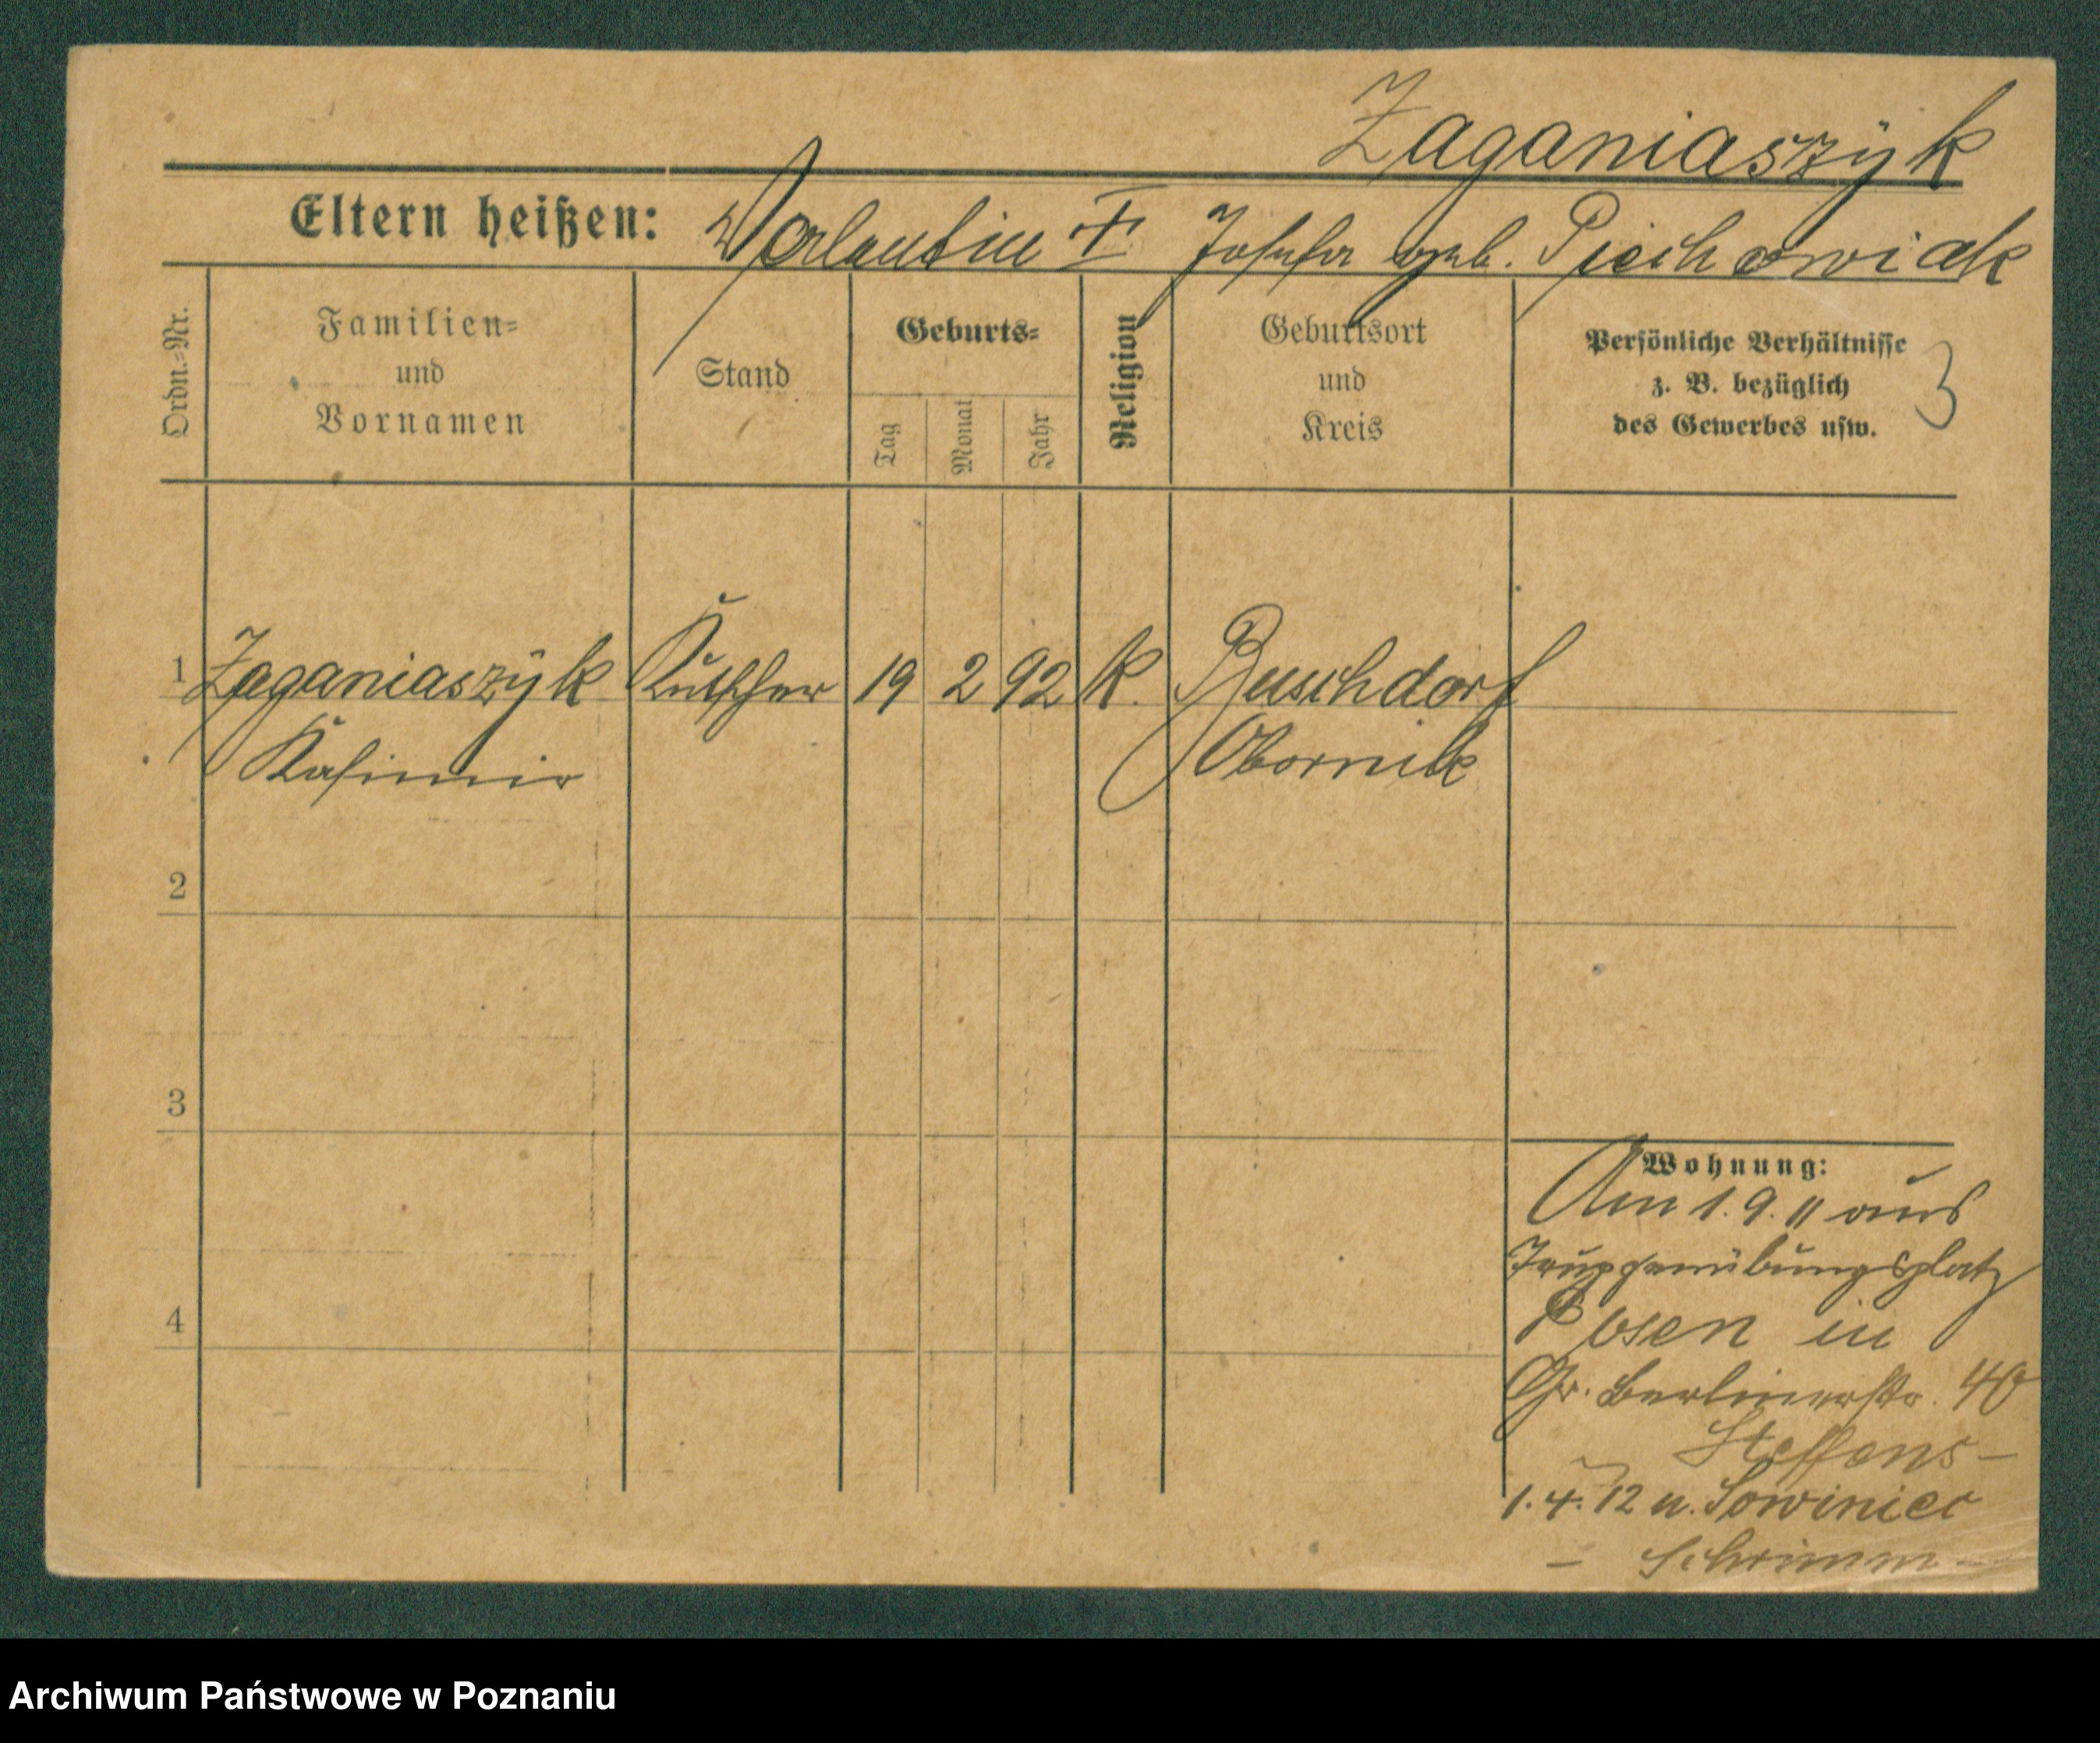 Zaganiaszÿk
Eltern heißen: Valentin † Josefa geb. Piechowiak
Ordn.=Nr.
Familien=
und
Vornamen
Stand
Geburts=
Tag
Monat
Jahr
Religion
Geburtsort
und
Kreis
Persönliche Verhältnisse
z. B. bezüglich
des Gewerbes usw.
3
1 Zaganiaszÿk Kutscher 19 2 92 k. Buschdorf
Kasimir Obornik
2
3
4
Wohnung:
Am 1. 9. 11 aus
Truppenübungsplatz
Posen in
Gr. Berlinerstr. 40
Steffens-
1. 4. 12 n. Sowiniec
- Schrimm -
Archiwum Państwowe w Poznaniu